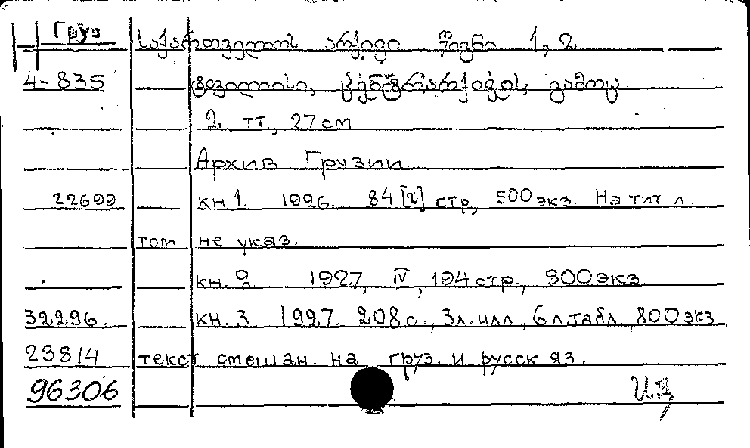 Груз საქართველოს არქივი წიგნი 1, 2
4-835 ტფილისი, ცენტრარქივის გამოც
2 тт, 27 см
Архив Грузии
22699 кн 1. 1926. 84 [2] стр, 500 экз. На тит л.
том не указ.
кн. 2 1927, IV, 194 стр, 900 экз
32296. кн. 3 1927 208 с., 3 л. илл, 6 л табл, 800 экз
23814 текст смешан. на груз. и русск яз.
96306